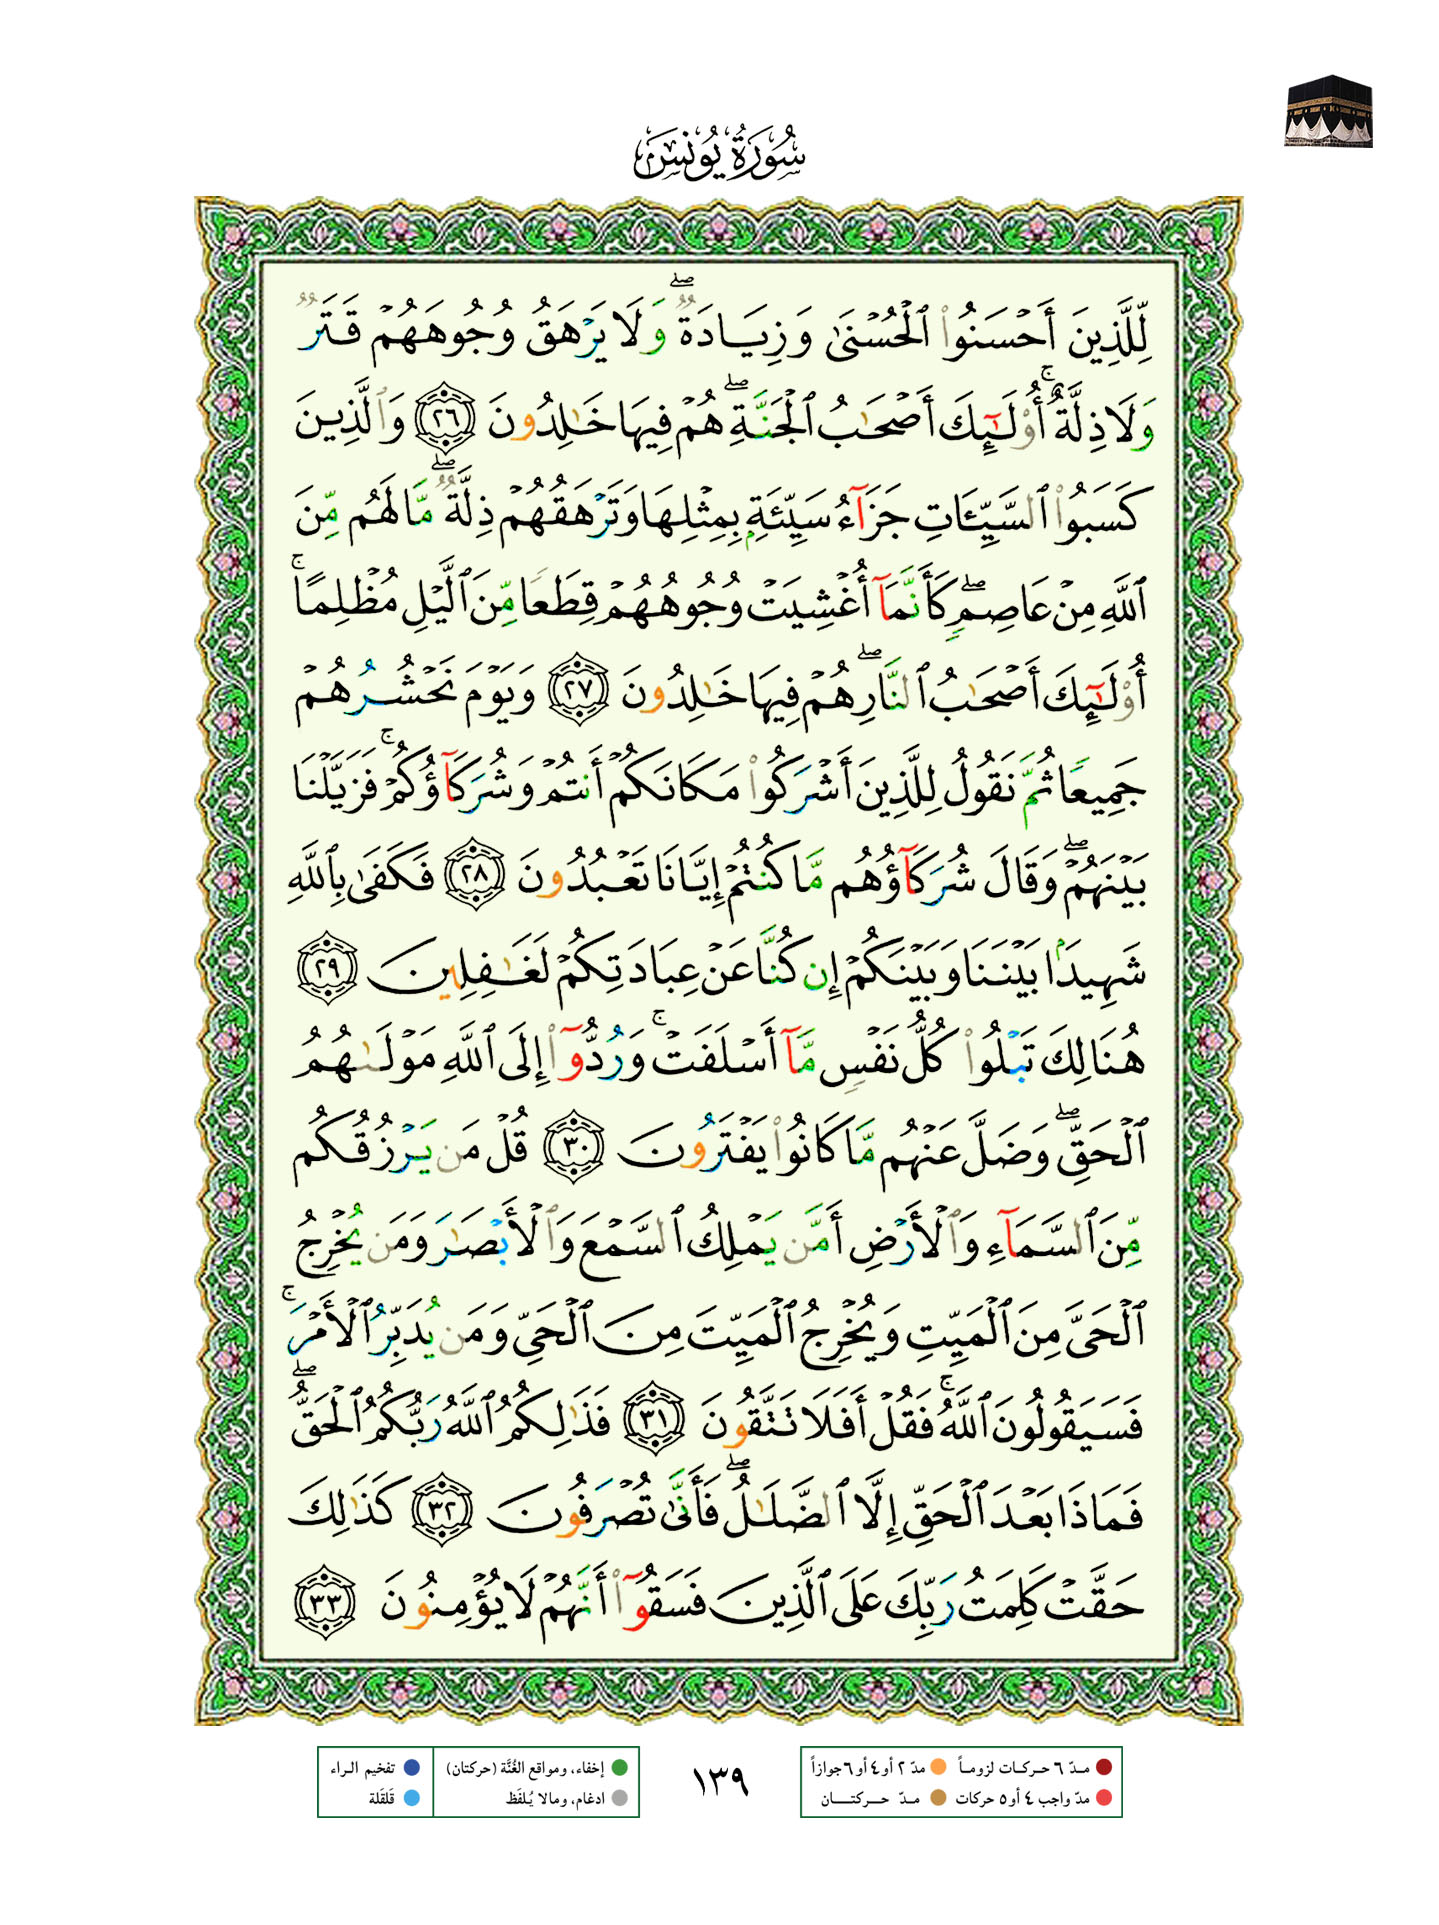 سُورَةُ يُونُسَ
لِّلَّذِينَ أَحْسَنُوا۟ ٱلْحُسْنَىٰ وَزِيَادَةٌ ۖ وَلَا يَرْهَقُ وُجُوهَهُمْ قَتَرٌ
وَلَا ذِلَّةٌ ۚ أُو۟لَـٰٓئِكَ أَصْحَـٰبُ ٱلْجَنَّةِ ۖ هُمْ فِيهَا خَـٰلِدُونَ ٢٦ وَٱلَّذِينَ
كَسَبُوا۟ ٱلسَّيِّـَٔاتِ جَزَآءُ سَيِّئَةٍۭ بِمِثْلِهَا وَتَرْهَقُهُمْ ذِلَّةٌ ۖ مَّا لَهُم مِّنَ
ٱللَّهِ مِنْ عَاصِمٍ ۖ كَأَنَّمَآ أُغْشِيَتْ وُجُوهُهُمْ قِطَعًا مِّنَ ٱلَّيْلِ مُظْلِمًا ۚ
أُو۟لَـٰٓئِكَ أَصْحَـٰبُ ٱلنَّارِ ۖ هُمْ فِيهَا خَـٰلِدُونَ ٢٧ وَيَوْمَ نَحْشُرُهُمْ
جَمِيعًا ثُمَّ نَقُولُ لِلَّذِينَ أَشْرَكُوا۟ مَكَانَكُمْ أَنتُمْ وَشُرَكَآؤُكُمْ ۚ فَزَيَّلْنَا
بَيْنَهُمْ ۖ وَقَالَ شُرَكَآؤُهُم مَّا كُنتُمْ إِيَّانَا تَعْبُدُونَ ٢٨ فَكَفَىٰ بِٱللَّهِ
شَهِيدًۢا بَيْنَنَا وَبَيْنَكُمْ إِن كُنَّا عَنْ عِبَادَتِكُمْ لَغَـٰفِلِينَ ٢٩
هُنَالِكَ تَبْلُوا۟ كُلُّ نَفْسٍ مَّآ أَسْلَفَتْ ۚ وَرُدُّوٓا۟ إِلَى ٱللَّهِ مَوْلَىٰهُمُ
ٱلْحَقِّ ۖ وَضَلَّ عَنْهُم مَّا كَانُوا۟ يَفْتَرُونَ ٣٠ قُلْ مَن يَرْزُقُكُم
مِّنَ ٱلسَّمَآءِ وَٱلْأَرْضِ أَمَّن يَمْلِكُ ٱلسَّمْعَ وَٱلْأَبْصَـٰرَ وَمَن يُخْرِجُ
ٱلْحَىَّ مِنَ ٱلْمَيِّتِ وَيُخْرِجُ ٱلْمَيِّتَ مِنَ ٱلْحَىِّ وَمَن يُدَبِّرُ ٱلْأَمْرَ ۚ
فَسَيَقُولُونَ ٱللَّهُ ۚ فَقُلْ أَفَلَا تَتَّقُونَ ٣١ فَذَٰلِكُمُ ٱللَّهُ رَبُّكُمُ ٱلْحَقُّ ۖ
فَمَاذَا بَعْدَ ٱلْحَقِّ إِلَّا ٱلضَّلَـٰلُ ۖ فَأَنَّىٰ تُصْرَفُونَ ٣٢ كَذَٰلِكَ
حَقَّتْ كَلِمَتُ رَبِّكَ عَلَى ٱلَّذِينَ فَسَقُوٓا۟ أَنَّهُمْ لَا يُؤْمِنُونَ ٣٣
مدّ ٦ حركات لزوماً مدّ ٢ أو ٤ أو ٦ جوازاً
مدّ واجب ٤ أو ٥ حركات مدّ حركتان
١٣٩
إخفاء، ومواقع الغُنَّة (حركتان) تفخيم الراء
ادغام، ومالا يُلفَظ قَلقَلة